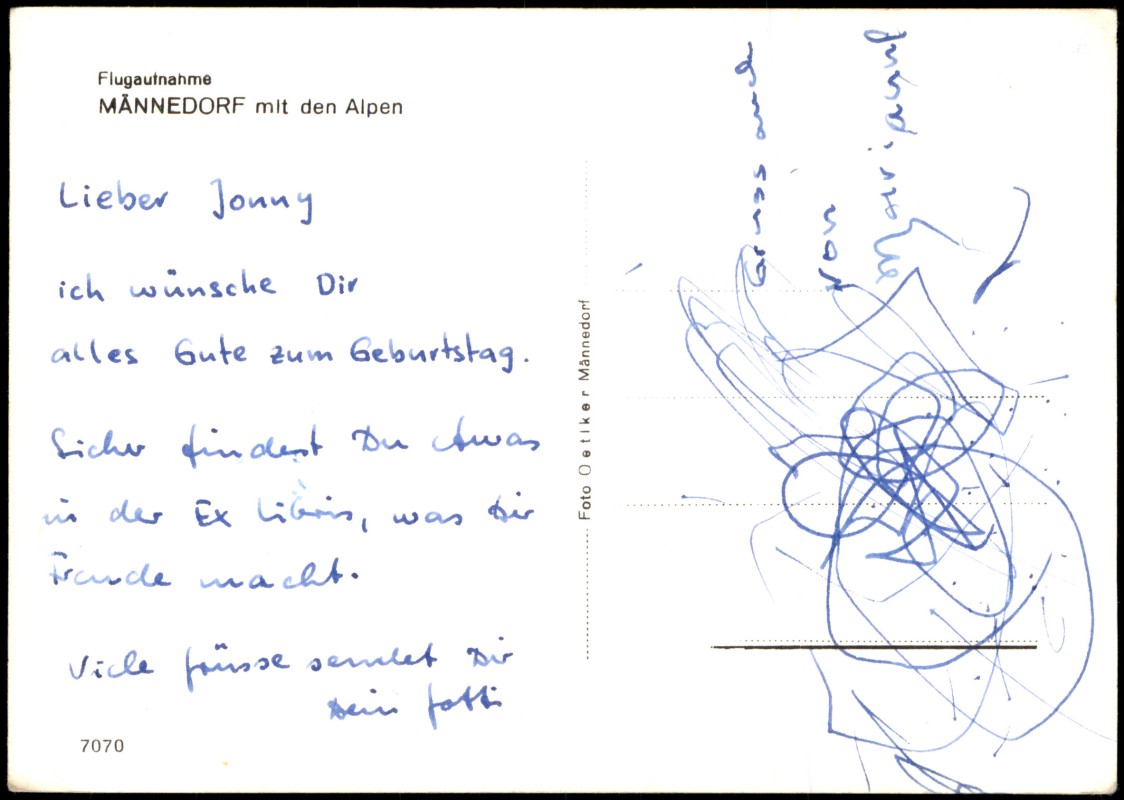 Flugaufnahme
MÄNNEDORF mit den Alpen
Lieber Jonny
ich wünsche Dir
alles Gute zum Geburtstag.
Sicher findest Du etwas
in der Ex Libris, was Dir
Freude macht.
Viele grüsse sendet Dir
Dein Götti
7070
Foto Oetiker Männedorf
Gruss auch
von